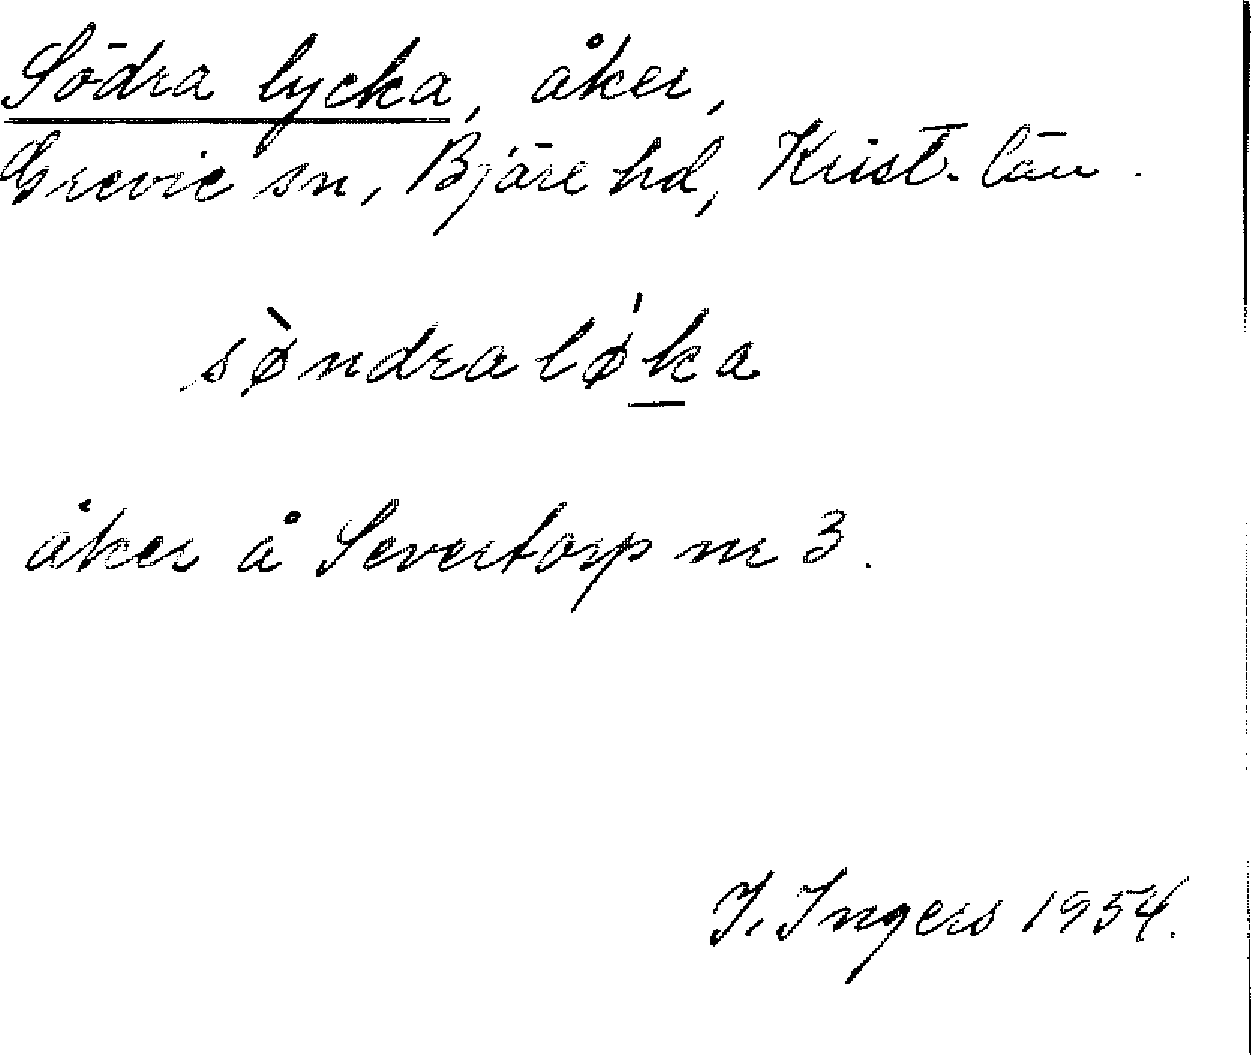 Södra lycka, åker,
Grevie sn, Bjäre hd, Krist. län.
sø̀ndralǿk̲a
åker å Severtorp nr 3.
I. Ingers 1954.